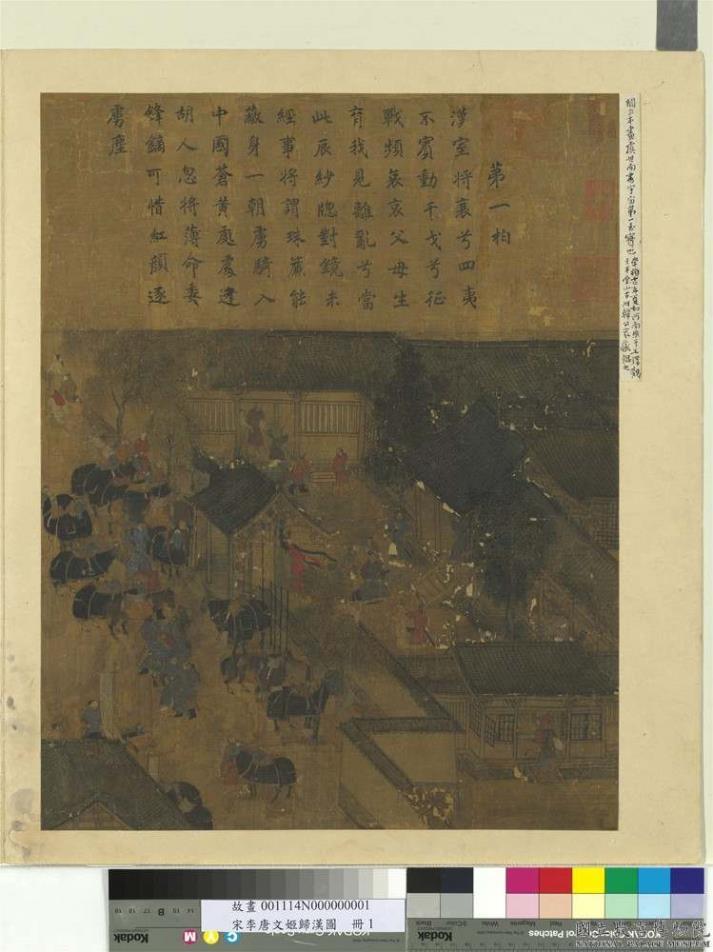 閻立本畫虞世南書宇宙第一
第一拍
漢室將衰兮四夷
不賓動干戈兮征
戰頻哀哀父母生
育我見離亂兮當
此辰紗牕對鏡未
經事將謂珠簾能
蔽身一朝虜騎入
中國蒼黃處處逢
胡人忽將薄命委
鋒鏑可惜紅顏逐
虜塵
故畫 001114N000000001
宋李唐文姬歸漢圖 冊 1
Kodak
B
C Y M
Black 3/Color White Magenta Red Yellow Green Cyan Blue
國立故宮博物院
NATIONAL PALACE MUSEUM